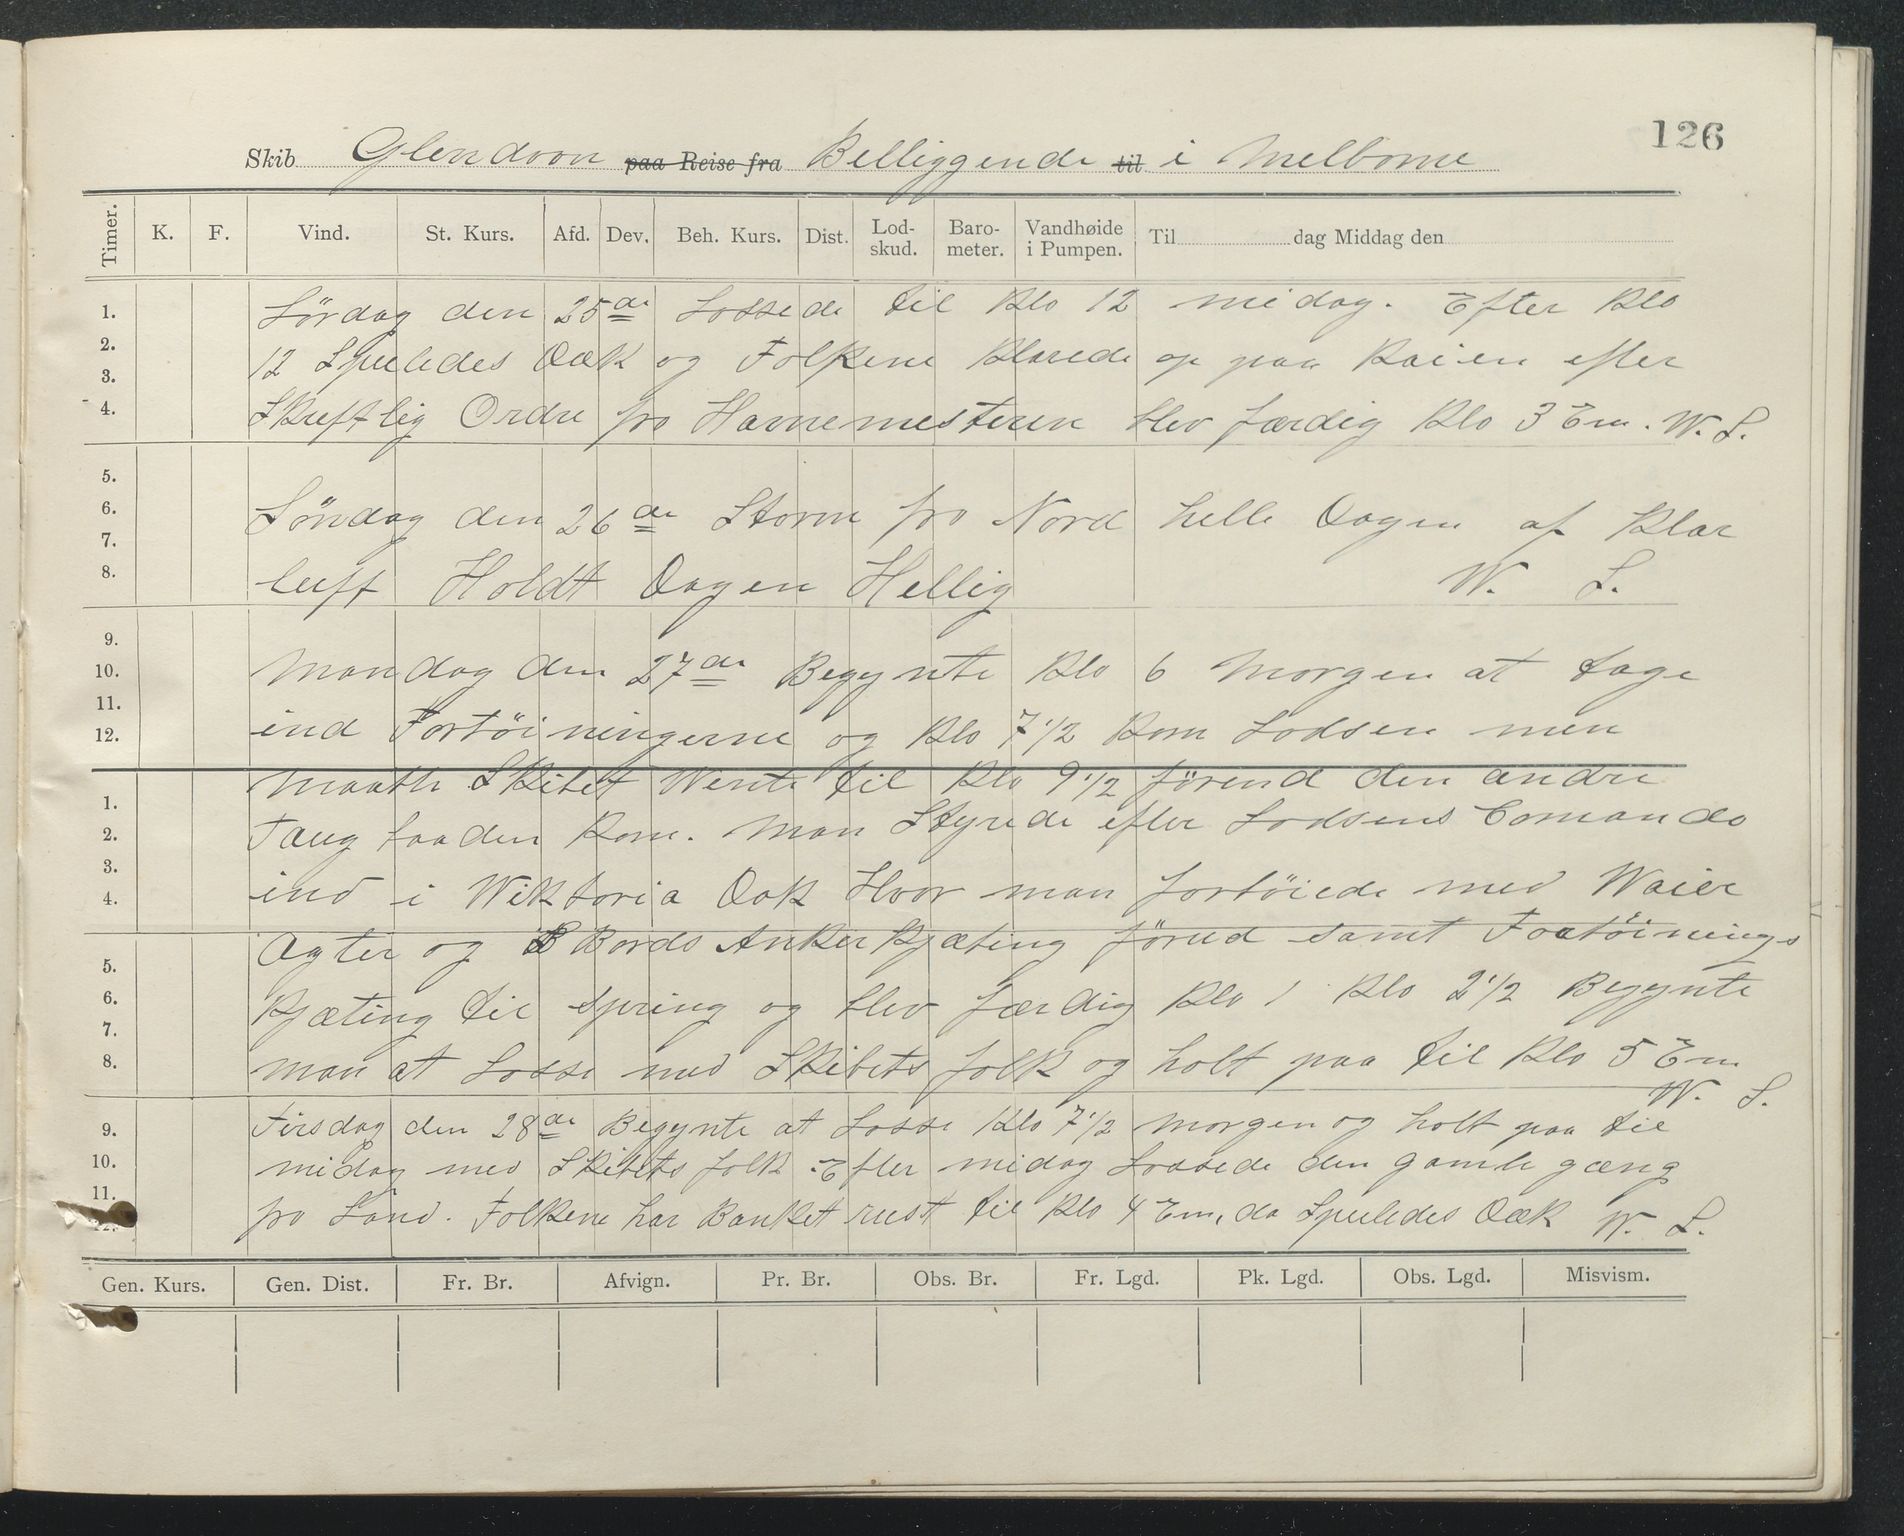 126
Skib Glendoon paa Reise fra Belliggende til i Melborne
Timer. K. F. Vind. St. Kurs. Afd. Dev. Beh. Kurs. Dist. Lod-skud. Baro-meter. Vandhøide i Pumpen. Til dag Middag den
1. Lördag den 25de Lossede til Klo 12 midag. Efter Klo
2. 12 Spuledes Dæk og Folkene Klarede op paa Kaien efter
3.
4. Skreftlig Ordre fra Havnemesteren blev færdig Klo 3 Em. W. S.
5.
6. Söndag den 26de Storm fra Nord helle Dagen af Klar
7.
8. luft Holdt Dagen Hellig W. S.
9.
10. Mandag den 27de Begynte Klo 6 Morgen at tage
11.
12. ind Fortöiningerne og Klo 7 1/2 Kom Lodsen men
1. maatte Skibet Wente til Klo 9 1/2 förend den andre
2. Taugbaaden Kom. Man Styrede efter Lodsens Comando
3.
4. ind i Wiktoria Dok Hvor man fortöiede med Waier
5. Agter og B Bords Anker Kjæting förud samt Fortöinings
6. Kjæting til spring og blev færdig Klo 1 Klo 2 1/2 Begynte
7.
8. man at Losse med Skibets folk og holt paa til Klo 5 Em
W. S.
9. Tirsdag den 28de Begynte at Losse Klo 7 1/2 Morgen og holt paa til
10. midag med Skibets folk. Efter midag Lossede den gamle gæng
11.
12. fra Land. Folkene har Banket rust til Klo 4 Em, da Spuledes Dæk W. S.
Gen. Kurs. Gen. Dist. Fr. Br. Afvign. Pr. Br. Obs. Br. Fr. Lgd. Pk. Lgd. Obs. Lgd. Misvism.